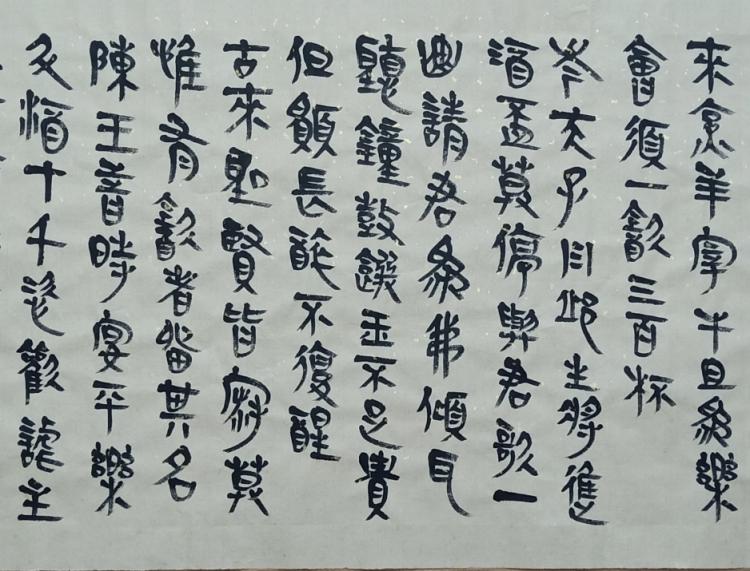 來烹羊宰牛且為樂
會須一飲三百杯
岑夫子丹邱生將進
酒盃莫停與君歌一
曲請君為我傾耳
聽鐘鼓饌玉不足貴
但願長醉不復醒
古來聖賢皆寂莫
惟有飲者留其名
陳王昔時宴平樂
斗酒十千恣歡謔主